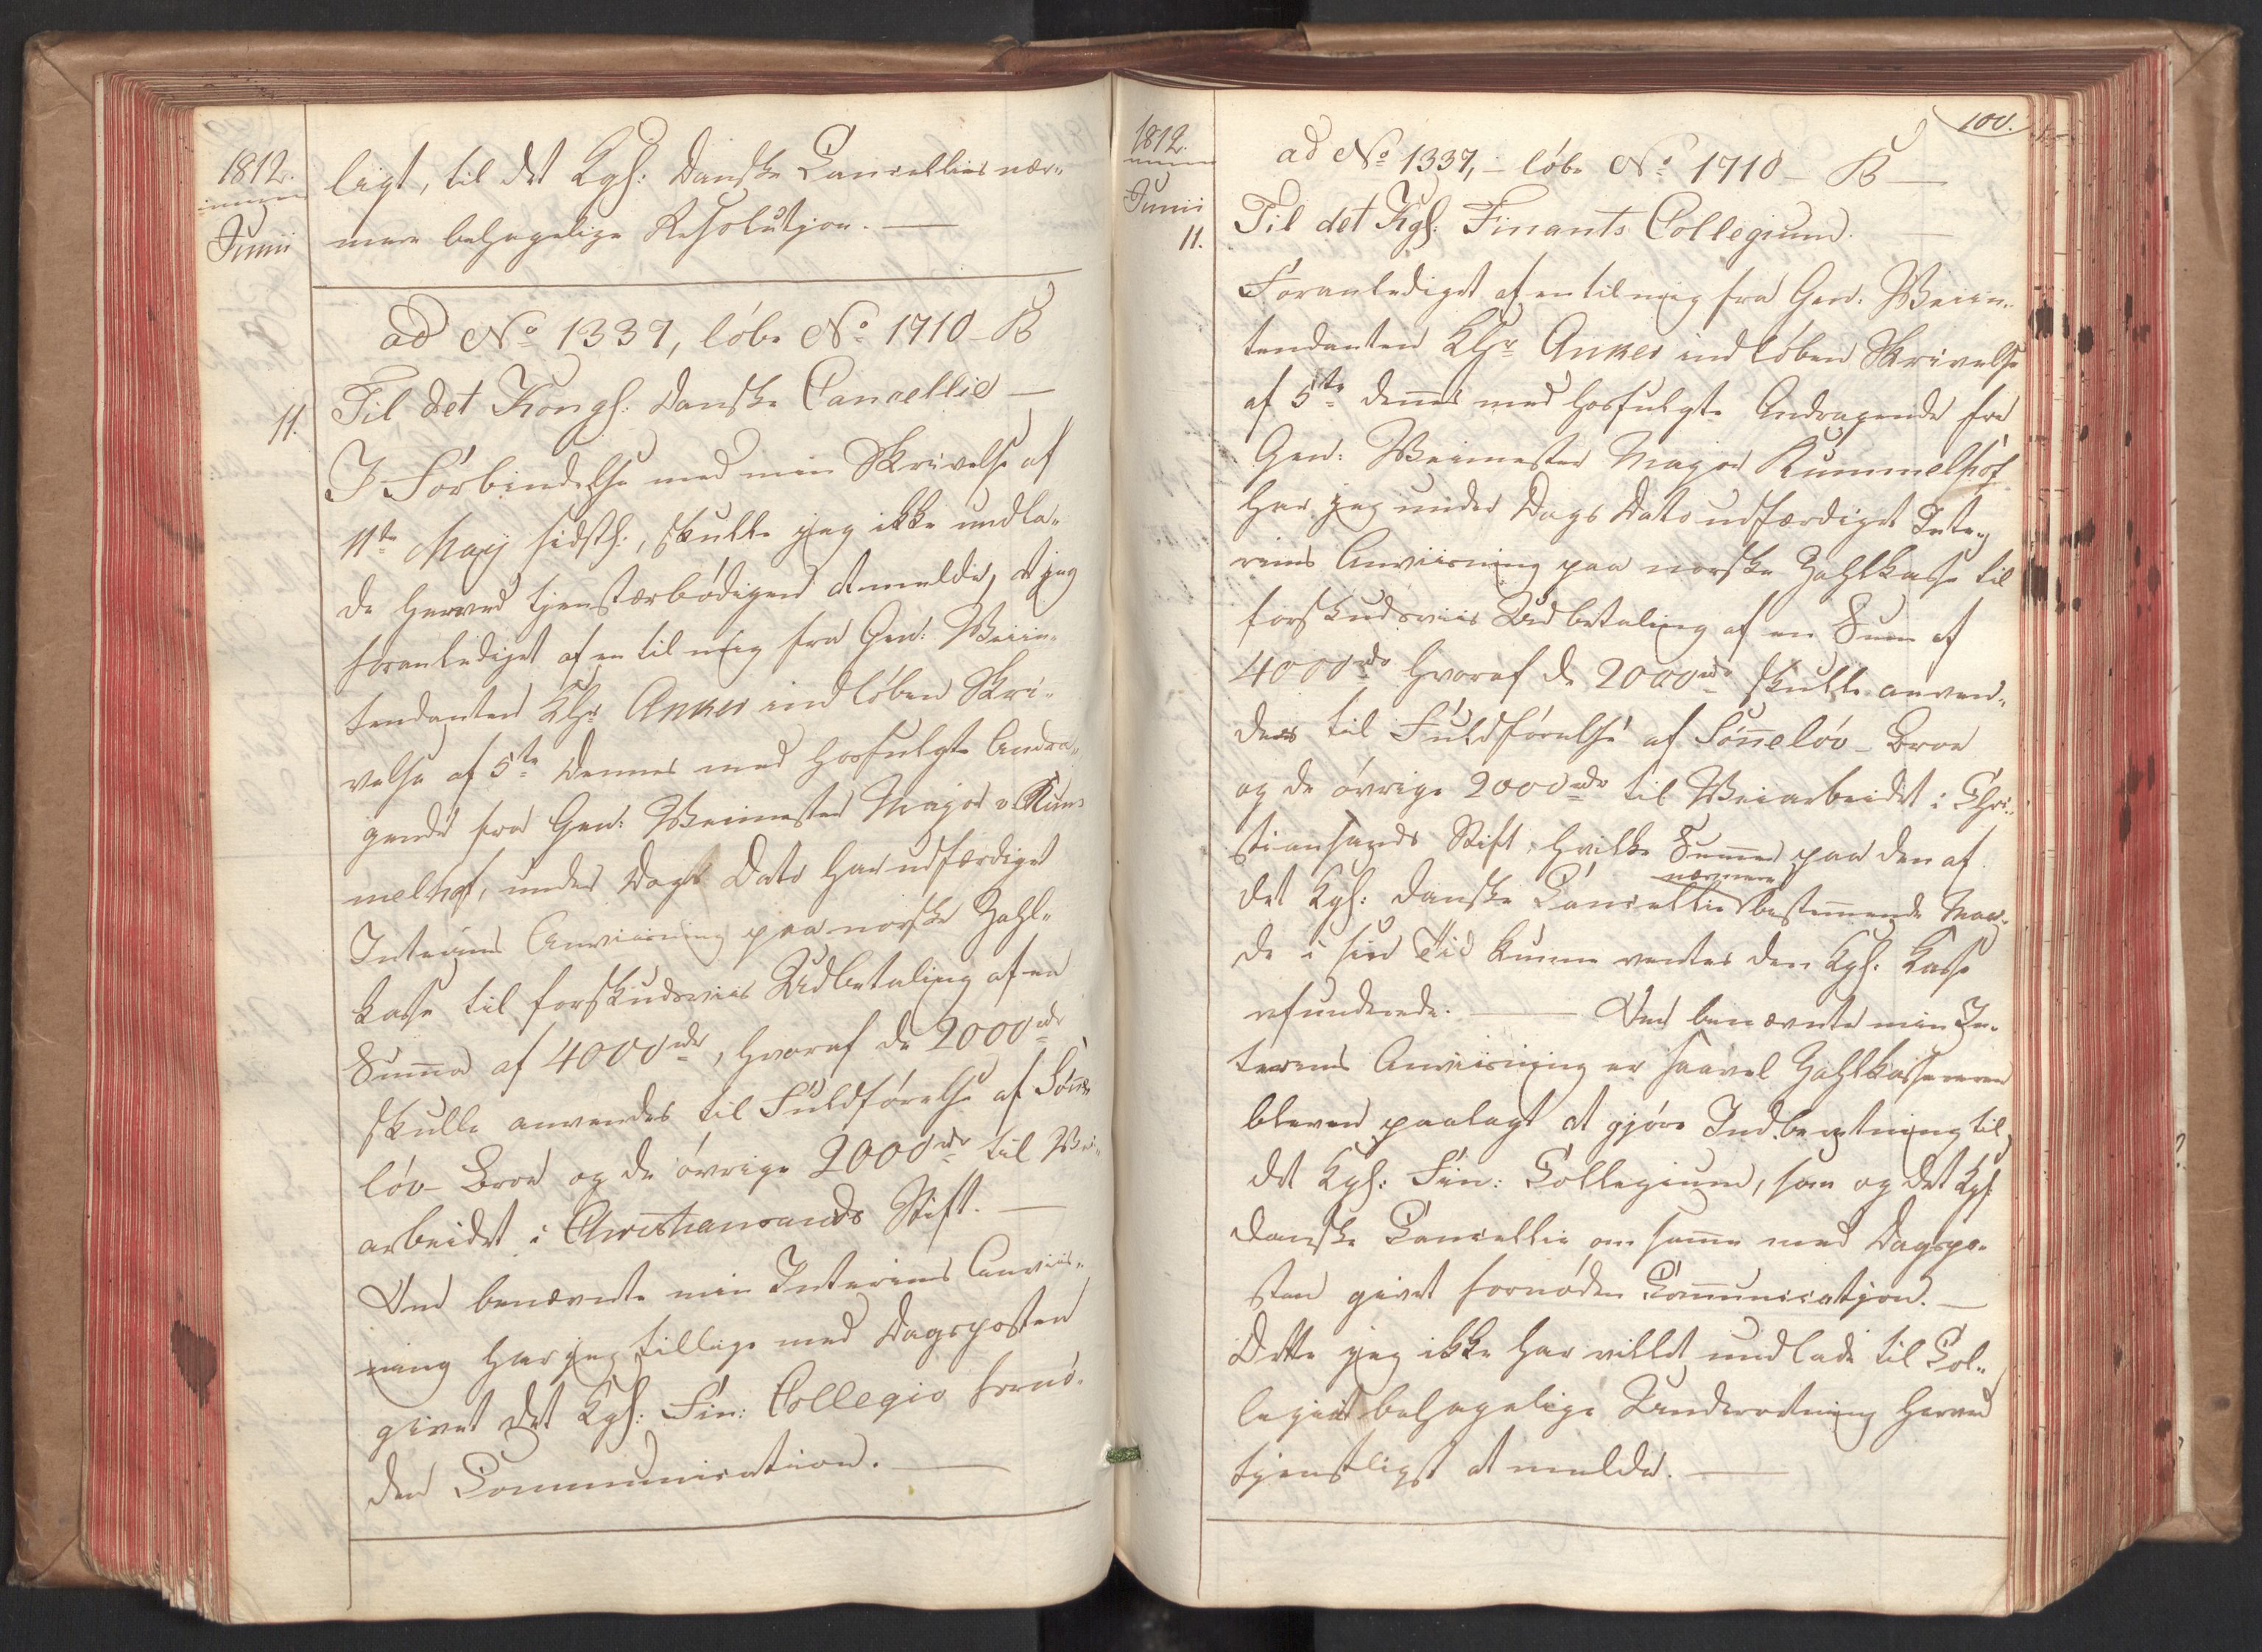 1812.
Junii
ligt, til det Kgl: Danske Cancellies nær-
mere behagelige Resolutjon. —
ad No 1337, løbe No 1710 - B
Til det Kongl: Danske Cancellie —
11.
I Forbindelse med min Skrivelse af
11te May sidstl:, skulle jeg ikke undla-
de herved tjenstærbødigen at melde, at jeg
foranlediget af en til mig fra Gen: Veiin-
tendanten Khr Anker indløben Skri-
velse af 5te Dennes med hosfulgte Andra-
gende fra Gen: Veimester Major v. Kum-
melhof, under Dags Dato har udfærdiget
Interims Anviisning paa norske Zahl-
kasse til forskudsviis Udbetaling af en
Summa af 4000 rdr, hvoraf de 2000 rdr
skulle anvendes til Fuldførelse af Sønne-
løv-Broe og de øvrige 2000 rdr til Vei-
arbeidet i Christiansands Stift. —
Om benævnte min Interims Anviis-
ning har jeg tillige med Dagsposten
givet det Kgl: Fin: Collegio fornø-
den Communication. —
100.
1812.
Junii
11.
ad No 1337, - løbe No 1710 - B —
Til det Kgl: Finants Collegium. —
Foranlediget af en til mig fra Gen: Veiin-
tendanten Khr Anker indløben Skrivelse
af 5te dennes med hosfulgte Andragende fra
Gen: Veimester Major Kummelhof
har jeg under Dags Dato udfærdiget Inte-
rims Anviisning paa norske Zahlkasse til
forskudsviis Udbetaling af en Sum af
4000 rdr hvoraf de 2000 rdr skulle anven-
des til Fuldførelse af Sønneløv-Broe
og de øvrige 2000 rdr til Veiarbeidet i Chri-
stiansands Stift, hvilke Summer paa den af
det Kgl: Danske Cancellie nærmere bestemmende Maa-
de i sin Tid kunne ventes den Kgl: Kasse
refunderede. — Om benævnte min In-
terims Anviisning er saavel Zahlkassereren
bleven paalagt at gjøre Indberetning til
det Kgl: Fin: Collegium, som og det Kgl:
Danske Cancellie om samme med Dagspo-
sten givet fornøden Communicatjon. —
Dette jeg ikke har villet undlade til Col-
legiets behagelige Underretning herved
tjenstligst at melde. —